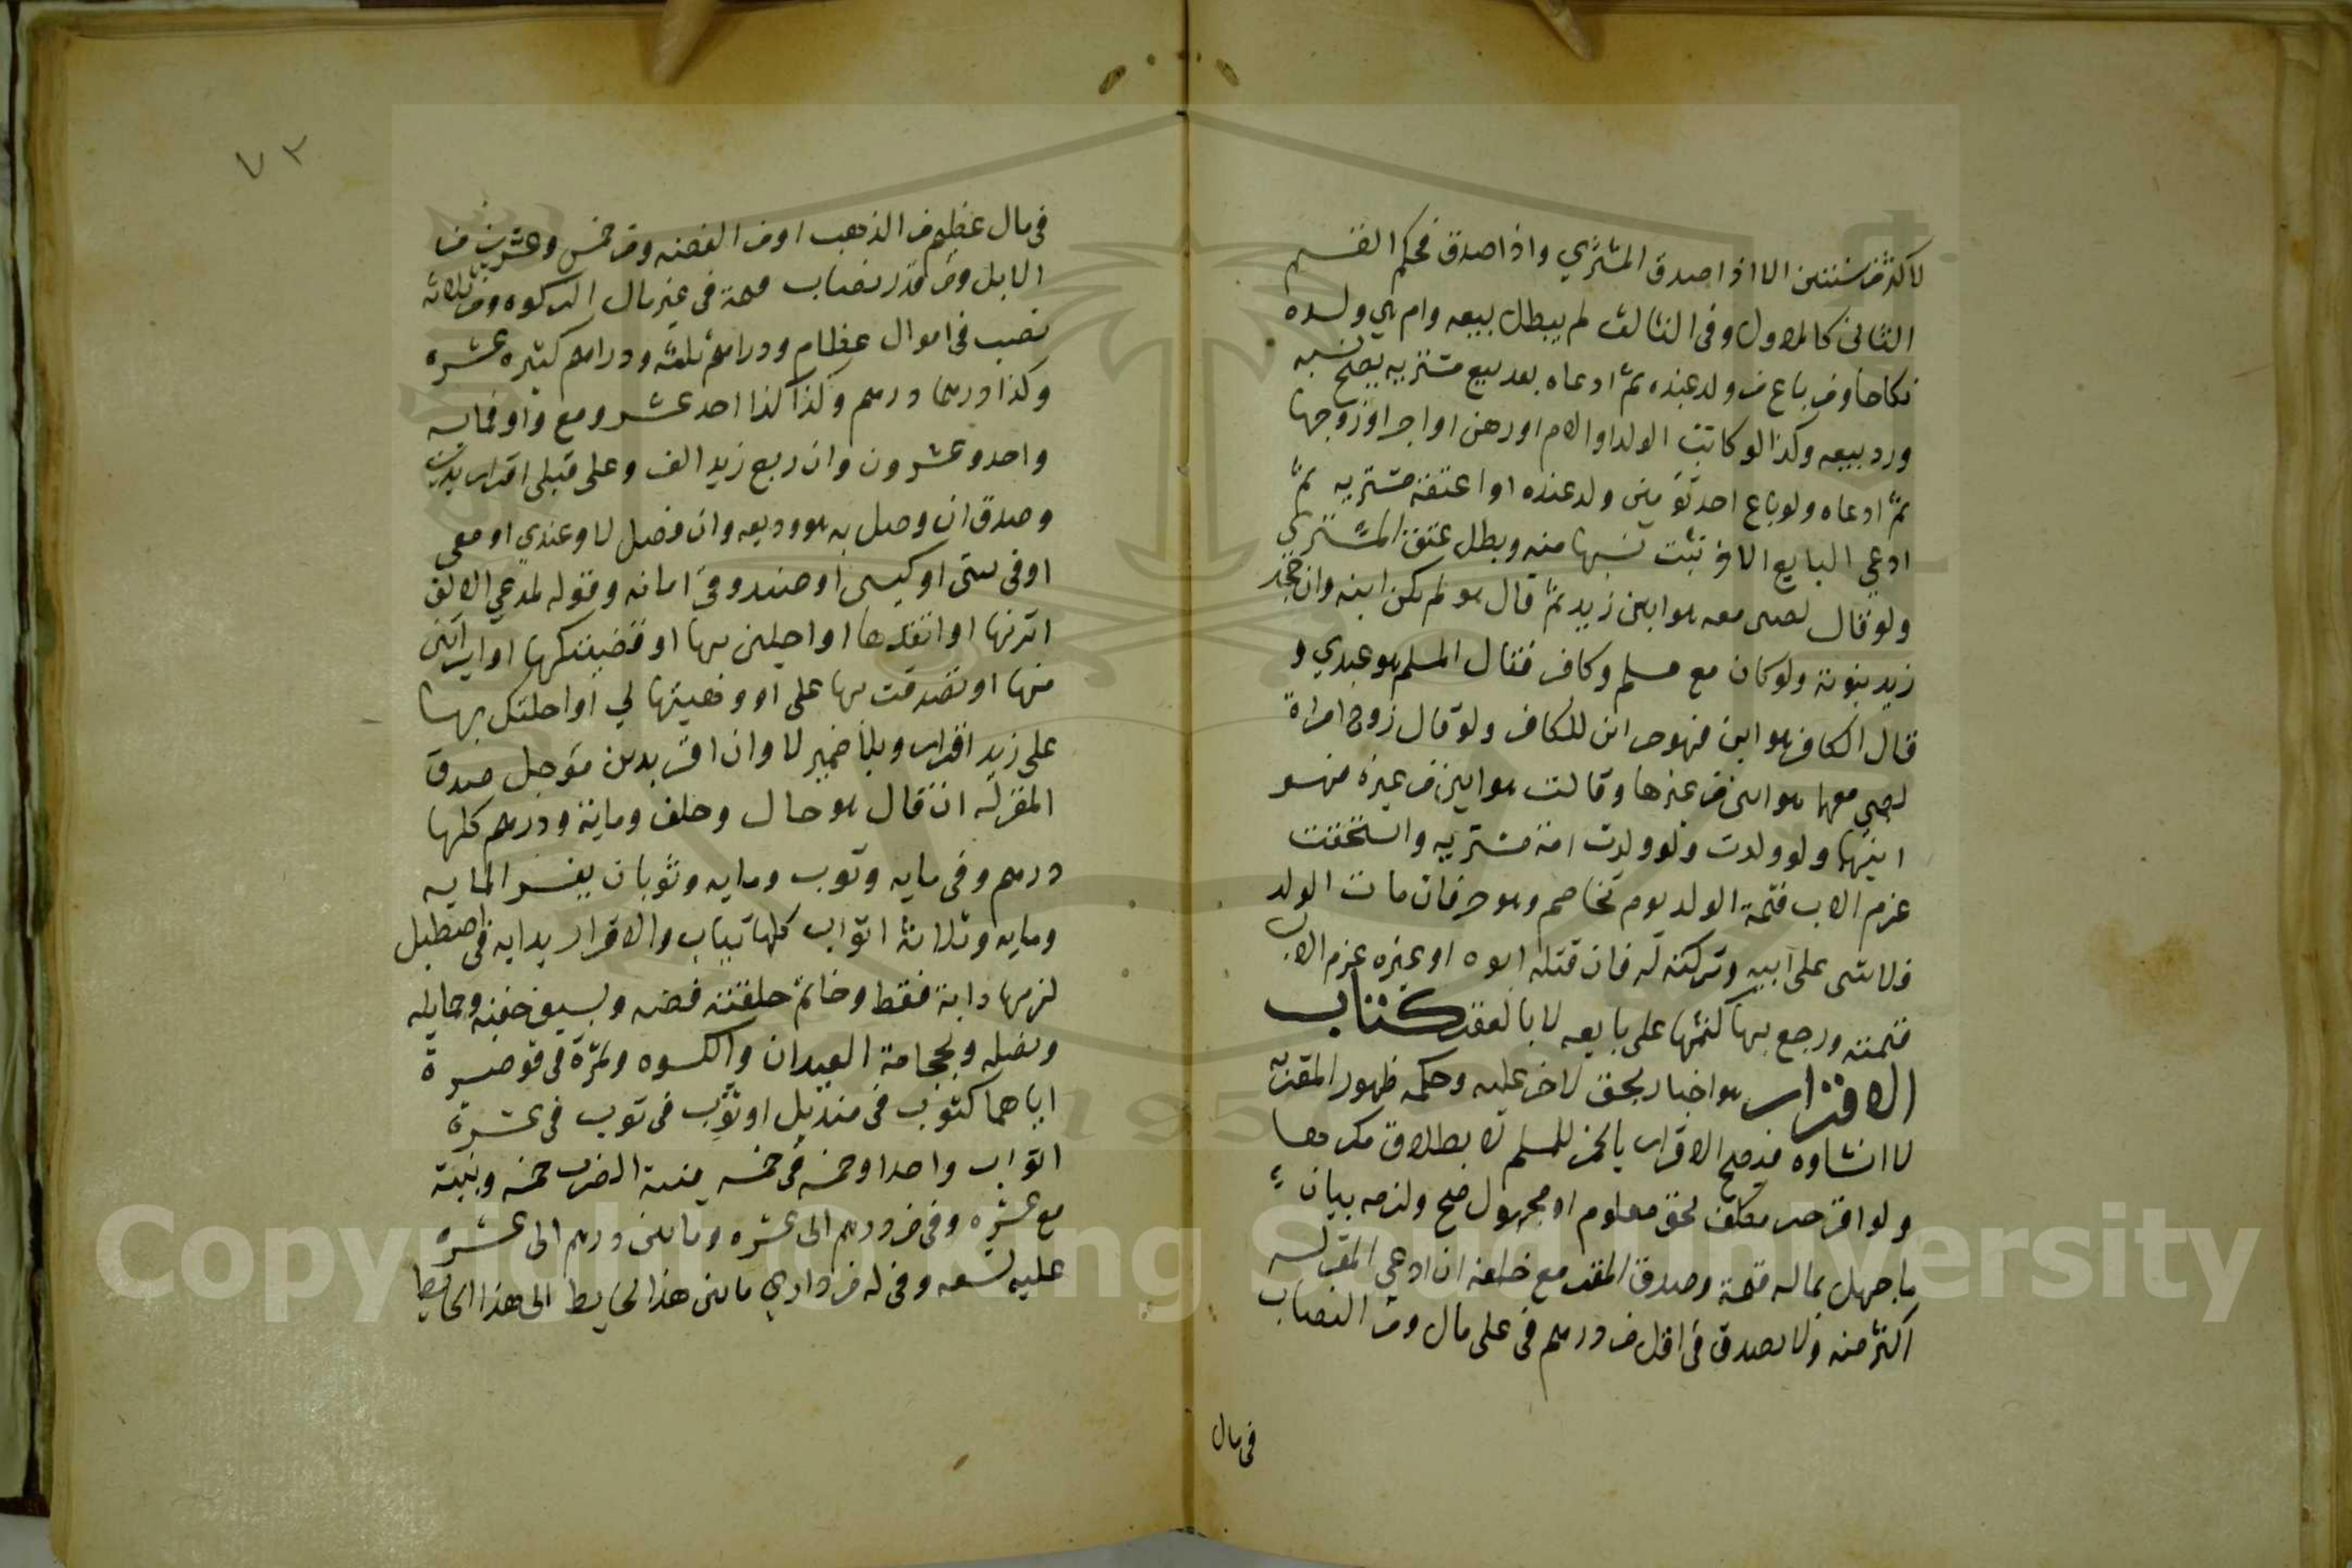 لاكثر من سنتين الا اذا صدق المشتري واذا صدق فحكم القسم
الثاني كالاول وفي الثالث لم يبطل بيعه وام هي ولده
نكاحا ومن باع من ولد عنده ثم ادعاه بعد بيع مشتريه يصح نسبه
ورد بيعه وكذا لو كاتب الولد او الام او رهن او اجر او زوجها
ثم ادعاه ولو باع احد توءمين ولد عنده او اعتقه مشتريه ثم
ادعي البايع الاخر ثبت نسبهما منه وبطل عتق المشتري
ولو قال لصبي معه هو ابن زيد ثم قال هو لم يكن ابنه وان جحد
زيد بنوته ولو كان مع مسلم وكافر فقال المسلم هو عبدي و
قال الكافر هو ابني فهو حر ابن للكافر ولو قال زوج امراة
لصبي معهما هو ابني من غيرها وقالت هو ابني من غيره فهو
ابنهما ولو ولدت ولو ولدت امة مشتريه واستحقت
غرم الاب قيمة الولد يوم تخاصم وهو حر فان مات الولد
فلا شي على ابيه وتركته له فان قتله ابوه او غيره غرم الاب
قيمته ورجع بها كثمنها على بايعه لا بالعقر كتاب
الاقرار هو اخبار بحق لاخر عليه وحكمه ظهور المقر به
لا انشاوه فيصح الاقرار بالخمر للمسلم لا بطلاق مكرها
ولو اقر حر مكلف بحق معلوم او مجهول صح ولزمه بيان
ما جهل بماله قيمة وصدق المقر مع حلفه ان ادعى المقر له
اكثر منه ولا يصدق في اقل من درهم في على مال ومن النصاب
في مال
٧٣
في مال عظيم من الذهب او من الفضه ومن خمس وعشرين من
الابل ومن قدر نصاب قيمة في غير مال الزكوه ومن ثلاثه
نصب في اموال عظام ودراهم ثلثه ودراهم كثيره عشره
وكذا درهما درهم وكذا كذا احد عشر ومع واو فمايه
واحد وعشرون وان ربع زيد الف وعلى قبلي اقرار بدين
وصدق ان وصل به هو وديعه وان فصل لا وعندي او معي
او في بيتي او كيسي او صندوقي امانه وقوله لمدعي الالف
اتزنها او انتقدها او اجلني بها او قضيتكها او ابراتني
منها او تصدقت بها على او وهبتها لي او احلتك بها
على زيد اقرار وبلا ضمير لا وان اقر بدين موجل صدق
المقر له ان قال هو حال وحلف وماية ودرهم كلها
درهم وفي مايه وثوب ومايه وثوبان يفسر المايه
ومايه وثلاثة اثواب كلها ثياب والاقرار بدابه في اصطبل
لزمها دابة فقط وخاتم حلقته فصه ولسيف جفنه وحمايله
ونصله وبحجلة العيدان والكسوه وتمرة في قوصرة
اياهما كثوب في منديل او ثوب في ثوب في عشرة
اثواب واحدا وخمسه في خمسه بنية الضرب خمسه وبنية
مع عشره وفي من درهم الى عشره وما بين درهم الى عشره
عليه تسعه وفي له من داري ما بين هذا الحايط الى هذا الحايط
Copyright © King Saud University
1957